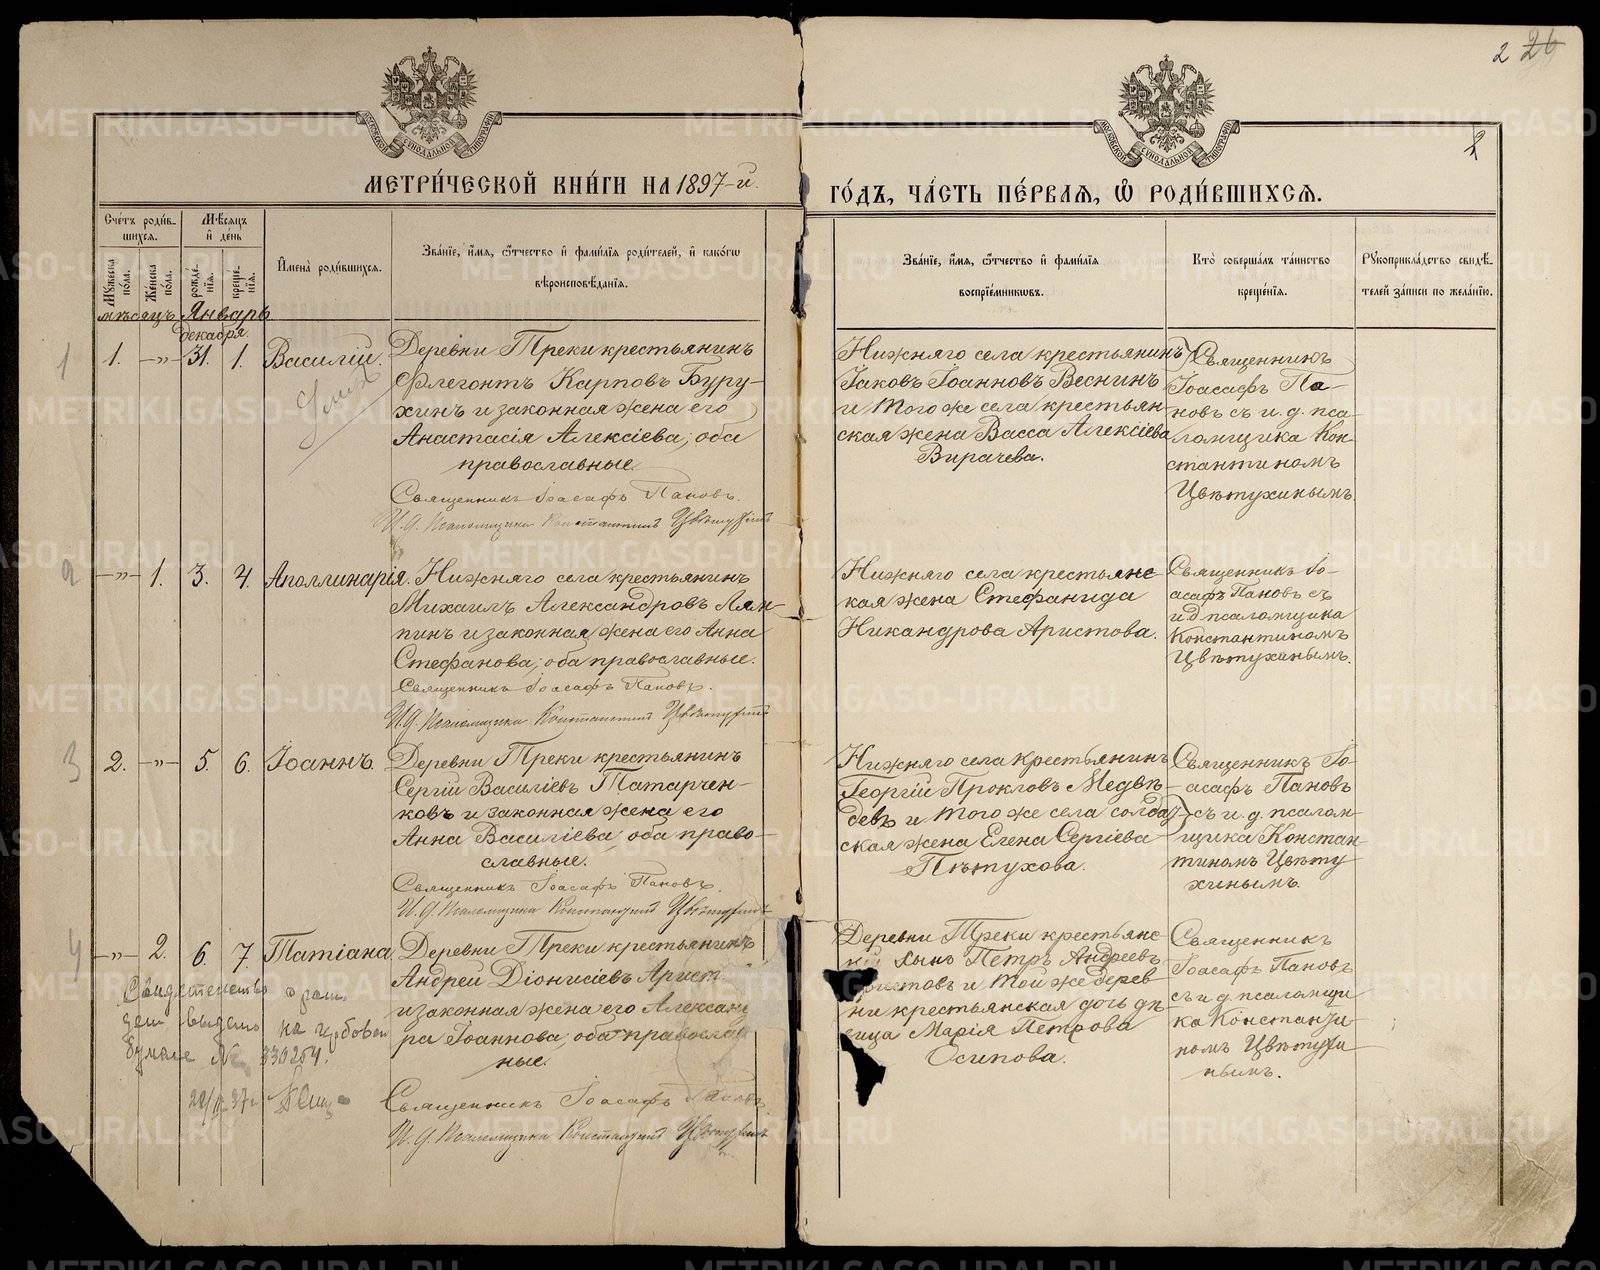 2 26
2
МОСКОВСКОЙ СѴНОДАЛЬНОЙ ТИПОГРАФІИ
МОСКОВСКОЙ СѴНОДАЛЬНОЙ ТИПОГРАФІИ
МЕТРИ́ЧЕСКОЙ КНИ́ГИ НА 1897-й.
ГО́ДЪ, ЧА́СТЬ ПЕ́РВАѦ, Ѽ РОДИ́ВШИХСѦ.
Сче́тъ роди́в-
шихсѧ.
Мѣ́сѧцъ
и҆ де́нь
Мꙋ́жеска по́ла.
Же́нска по́ла.
рожде́-
нїѧ.
креще́-
нїѧ.
И҆мена̀ роди́вшихсѧ.
Зва́нїе, и҆́мѧ, ѻ҆́тчество и҆ фами́лїѧ роди́телей, и҆ како́гѡ
вѣроисповѣ́данїѧ.
Зва́нїе, и҆́мѧ, ѻ҆́тчество и҆ фами́лїѧ
воспрїе́мникѡвъ.
Кто̀ соверша́лъ та́инство
креще́нїѧ.
Рꙋкоприкла́дство свидѣ́-
телей за́писи по жела́нїю.
мѣсяцъ Январь
декабря
1
1. —„— 31. 1. Василій.
Деревни Треки крестьянинъ
Флегонтъ Карповъ Буру-
хинъ и законная жена его
Анастасія Алексіева, оба
православные.
Священникъ Іоасафъ Пановъ.
И. д. Псаломщика Константинъ Цвѣтухинъ
Нижняго села крестьянинъ
Іаковъ Іоанновъ Веснинъ
и того же села крестьян
ская жена Васса Алексіева
Вирачева.
Священникъ
Іоасафъ Па-
новъ съ и. д. пса
ломщика Кон-
стантиномъ
Цвѣтухинымъ.
2
—„— 1. 3. 4. Аполлинарія.
Нижняго села крестьянинъ
Михаилъ Александровъ Ляп-
пинъ и законная жена его Анна
Стефанова, оба православные.
Священникъ Іоасафъ Пановъ.
И. д. Псаломщика Константинъ Цвѣтухинъ
Нижняго села крестьянс-
кая жена Стефанида
Никандрова Аристова.
Священникъ Іо-
асафъ Пановъ съ
и д псаломщика
Константиномъ
Цвѣтухинымъ.
3
2. —„— 5. 6. Іоаннъ.
Деревни Треки крестьянинъ
Сергій Василіевъ Татарчен-
ковъ и законная жена его
Анна Василіева, оба право-
славные.
Священникъ Іоасафъ Пановъ.
И. д. Псаломщика Константинъ Цвѣтухинъ
Нижняго села крестьянинъ
Георгій Прокловъ Медвѣ-
девъ и того же села солдат-
ская жена Елена Сергіева
Пѣтухова.
Священникъ Іо-
асафъ Пановъ
съ и. д. псалом-
щика Констан-
тиномъ Цвѣту
хинымъ.
4
—„— 2. 6. 7. Татіана
Деревни Треки крестьянинъ
Андрей Діонисіевъ Арист
и законная жена его Александ
ра Іоаннова, оба православ
ные.
Священникъ Іоасафъ Пановъ
И. д. Псаломщика Константинъ Цвѣтухинъ
Деревни Треки крестьянс
сынъ Петръ Андреевъ
ристовъ и той же дерев
ни крестьянская дочь дѣ
вица Марія Петрова
Осипова.
Священникъ
Іоасафъ Пановъ
съ и д. псаломщи
ка Константи
номъ Цвѣтухи
нымъ.
выдано на гербовой
бумаге № 330254.